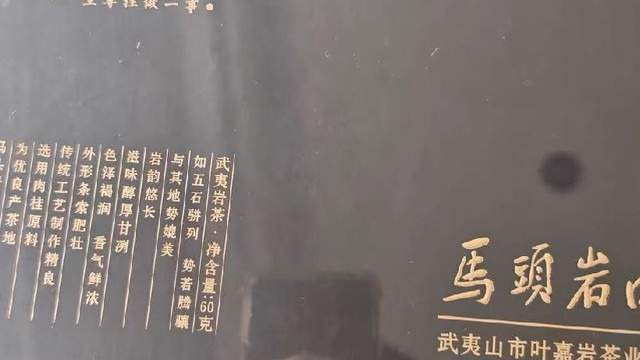 做一事。
为优良产茶地
选用肉桂原料
传统工艺制作精良
外形条索肥壮
色泽褐润 香气鲜浓
滋味醇厚甘冽
岩韵悠长
与其地势媲美
如五石骈列 势若腾骧
武夷岩茶·净含量:60克
馬頭岩
武夷山市叶嘉岩茶